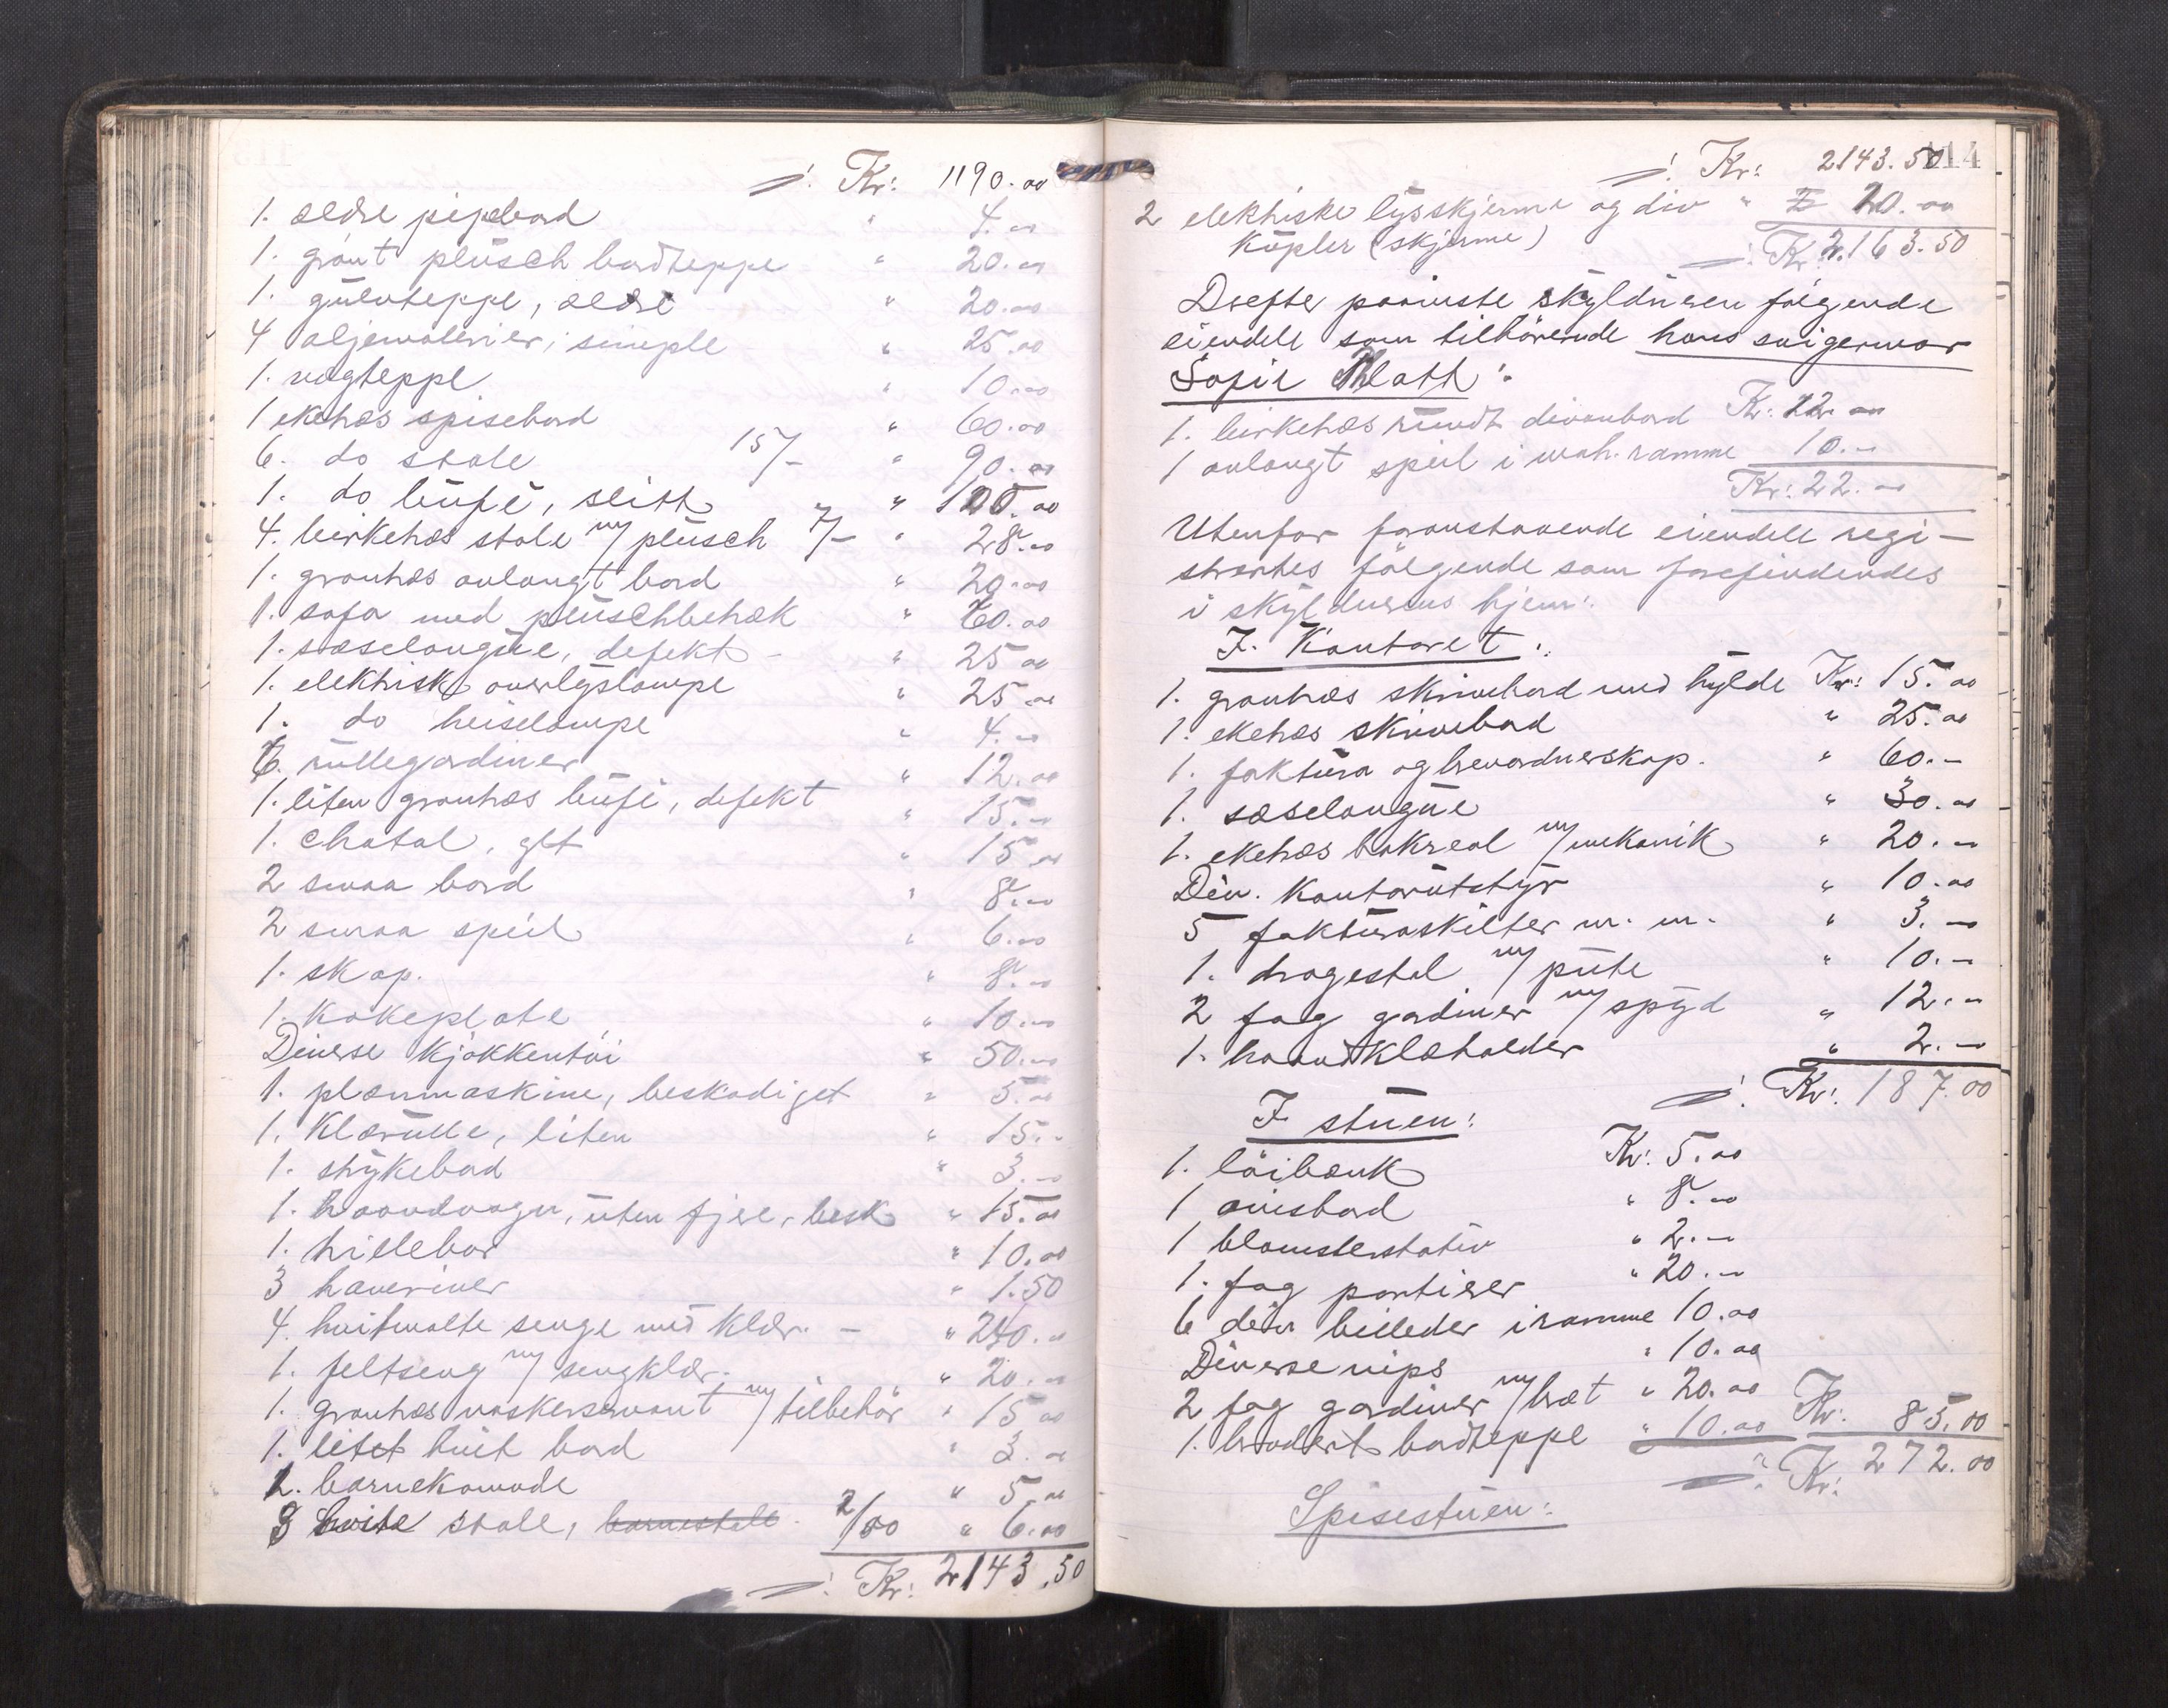 ÷ Kr: 1190.00
1. ældre pipebord " 4.00
1. grønt plüsch bordteppe " 20.00
1. gulvteppe, ældre " 20.00
4 oljemalerier, simple " 25.00
1. vægteppe " 10.00
1 eketræs spisebord " 60.00
6. do stole 15/- " 90.00
1. do büfé, slitt " 100.00
4. birketræs stole m/ plüsch 7/- " 28.00
1. grantræs avlangt bord " 20.00
1. sofa med plüschbetræk " 60.00
1. sæselongue, defekt - " 25.00
1. elektrisk overlyslampe " 25.00
1. do heiselampe " 4.00
6. rullegardiner " 12.00
1. liten grantræs büfé, defekt " 15.00
1. chatol, glt " 15.00
2 smaa bord " 8.00
2 smaa speil " 6.00
1. skap. " 8.00
1. kokeplate " 10.00
Diverse kjøkkentøi " 50.00
1. plænmaskine, beskadiget " 5.00
1. klærulle, liten " 15.-
1. strykebord " 3.00
1. haandvogn, uten fjære, besk " 15.00
1. trillebør " 10.00
3 haveriver " 1.50
4. hvitmalte senge med klær. - " 240.00
1. feltseng m/ sengklær. " 20.00
1. grantræs vaskerservant m/ tilbehør " 15.00
1. litet hvit bord " 3.00
1. barnekomode " 5.00
3 hvite stole, barnestole. 2/00 " 6.00
÷ Kr: 2143.50
114
÷ Kr: 2143.50
2 elektriske lysskjerme og div " 20.00
kupler (skjerme)
÷ Kr 2.163.50
Drefter paaviste skyldneren følgende
eiendele som tilhørende hans svigermor
Sofie Platt:
1. birketræs rundt divanbord Kr: 12.00
1 avlangt speil i mah. ramme 10.00
Kr: 22.00
Utenfor foranstaaende eiendele regi-
strertes følgende som forefindendes
i skyldnerens hjem:
I. Kontoret:
1. grantræs skrivebord med hylde Kr: 15.00
1. eketræs skrivebord " 25.00
1. faktura og brevordnerskap. " 60.-
1. sæselongue " 30.00
1. eketræs bokreol m/ mekanik " 20.00
Div. kontorutstyr " 10.00
5 fakturaskilter m. m. " 3.00
1. dragestol m/ pute " 10.-
2 fag gardiner m/ spyd " 12.00
1. haandklæholder " 2.00
÷ Kr: 187.00
I stuen:
1. løibænk Kr: 5.00
1 avisbord " 8.00
1 blomsterstativ " 2.00
1. fag portierer " 20.00
6 div billeder i ramme 10.00
Diverse nips " 10.00
2 fag gardiner m/ bræt " 20.00
1. brodert bordteppe " 10.00 Kr: 85.00
÷ Kr: 272.00
Spisestuen: